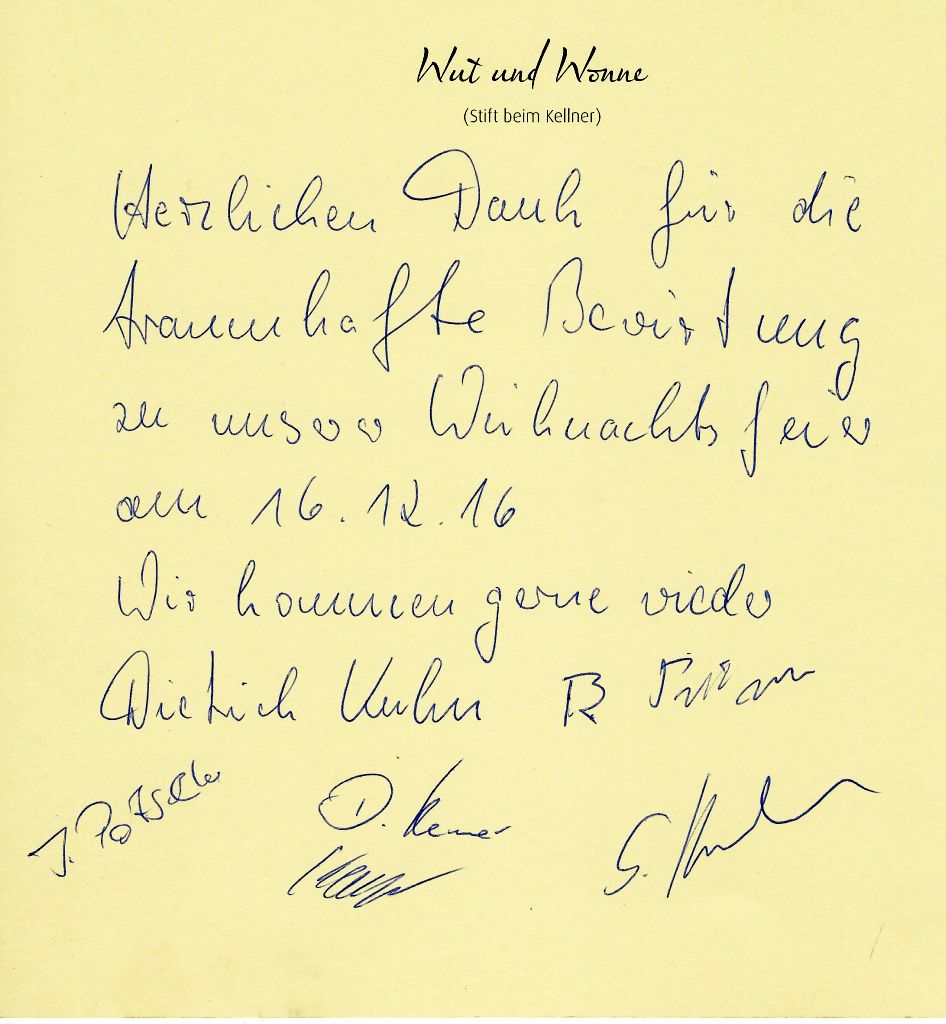 Wut und Wonne
(Stift beim Kellner)
Herzlichen Dank für die
traumhafte Bewirtung
zu unserer Weihnachtsfeier
am 16.12.16
Wir kommen gerne wieder
Dietrich Kuhn R
J.
D.
G.